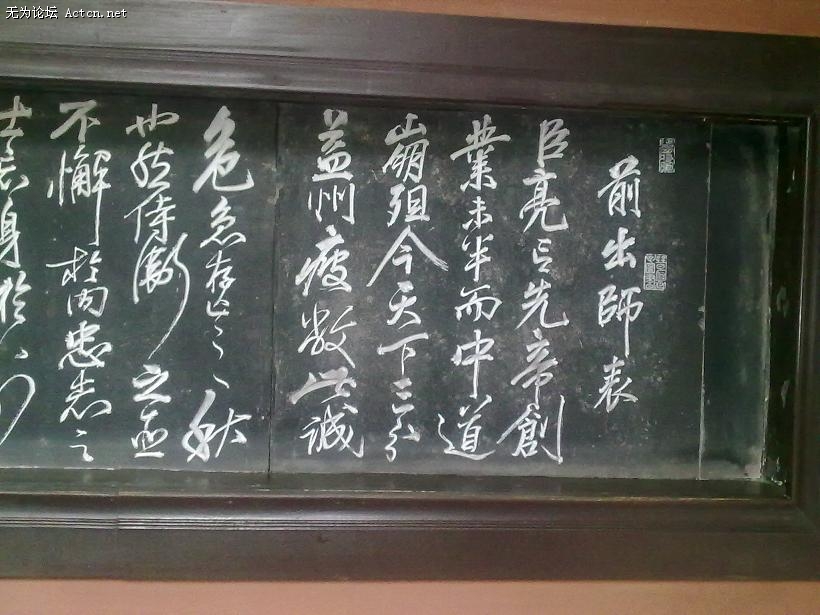 无为论坛 Actcn.net
前出師表
臣亮言先帝創
業未半而中道
崩殂今天下三分
益州疲敝此誠
危急存亡之秋
也然侍衛之臣
不懈於內忠志之
士忘身於外